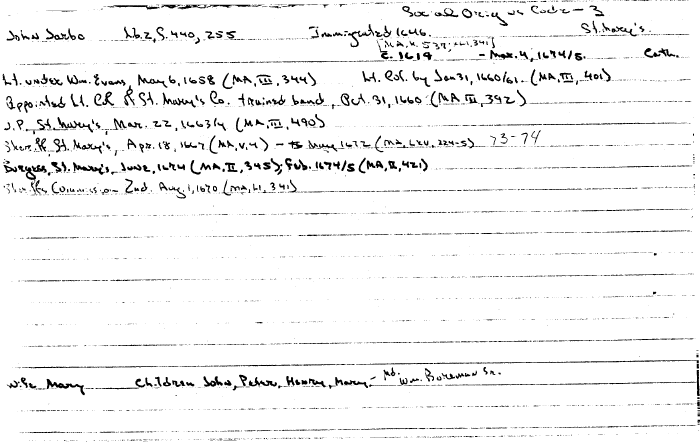 Social Origins Code - 3
John Jarbo Lib. 2, S. 440, 255 Immigrated 1646. St. Mary's.
c. 1619 - Mar. 4, 1674/5. Cath.
Lt. under Wm. Evans, May 6, 1658 (MA, III, 344) Lt. Col. by Jan 31, 1660/61. (MA, III, 401)
Appointed Lt. Col. of St. Mary's Co. trained band, Oct. 31, 1660 (MA, III, 392)
J.P., St. Mary's, Mar. 22, 1663/4 (MA, III, 490)
Sheriff, St. Mary's, Apr. 18, 1667 (MA, V, 4) - to May 1672 (MA, LXV, 224-5) 73-74
Burgess, St. Mary's, June, 1674 (MA, II, 345); Feb. 1674/5 (MA, II, 421)
Sheriffs Commission 2nd. Aug. 1, 1670 (MA, LI, 341)
Wife Mary Children John, Peter, Henry, Mary, - Md. Wm. Boreman Sr.